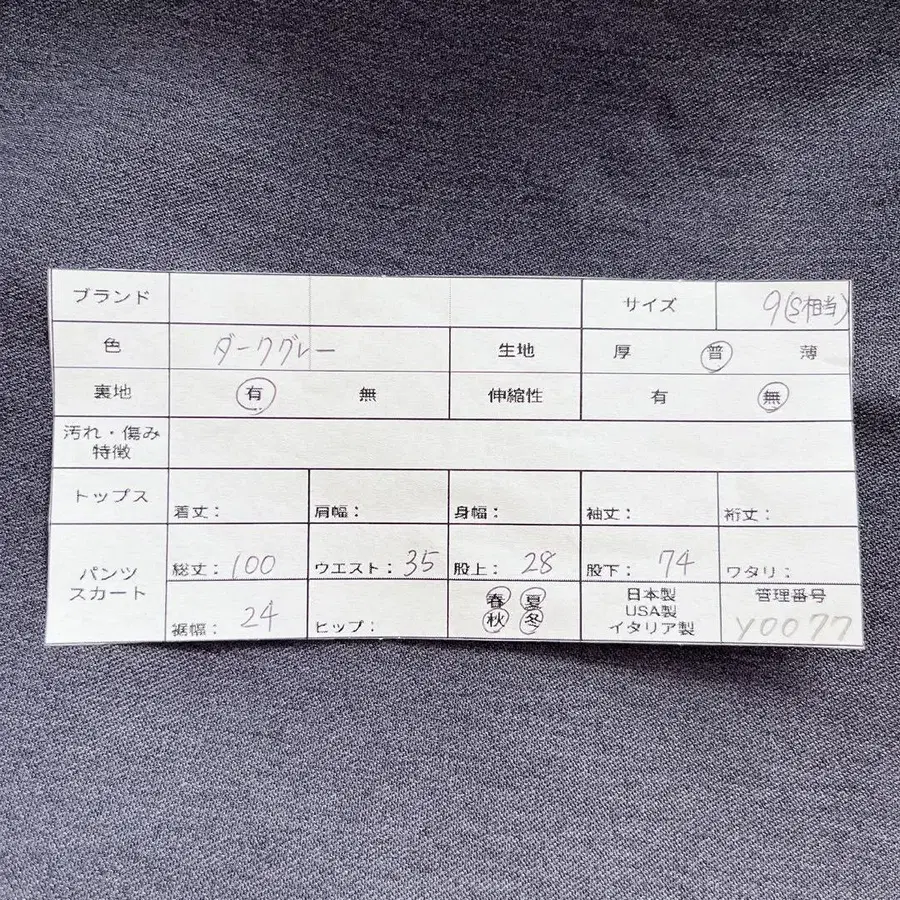 ブランド サイズ 9(S相当)
色 ダークグレー 生地 厚 普 薄
裏地 有 無 伸縮性 有 無
汚れ・傷み
特徴
トップス 着丈: 肩幅: 身幅: 袖丈: 裄丈:
パンツ
スカート
総丈: 100 ウエスト: 35 股上: 28 股下: 74 ワタリ:
裾幅: 24 ヒップ:
春 夏
秋 冬
日本製
USA製
イタリア製
管理番号
Y0077